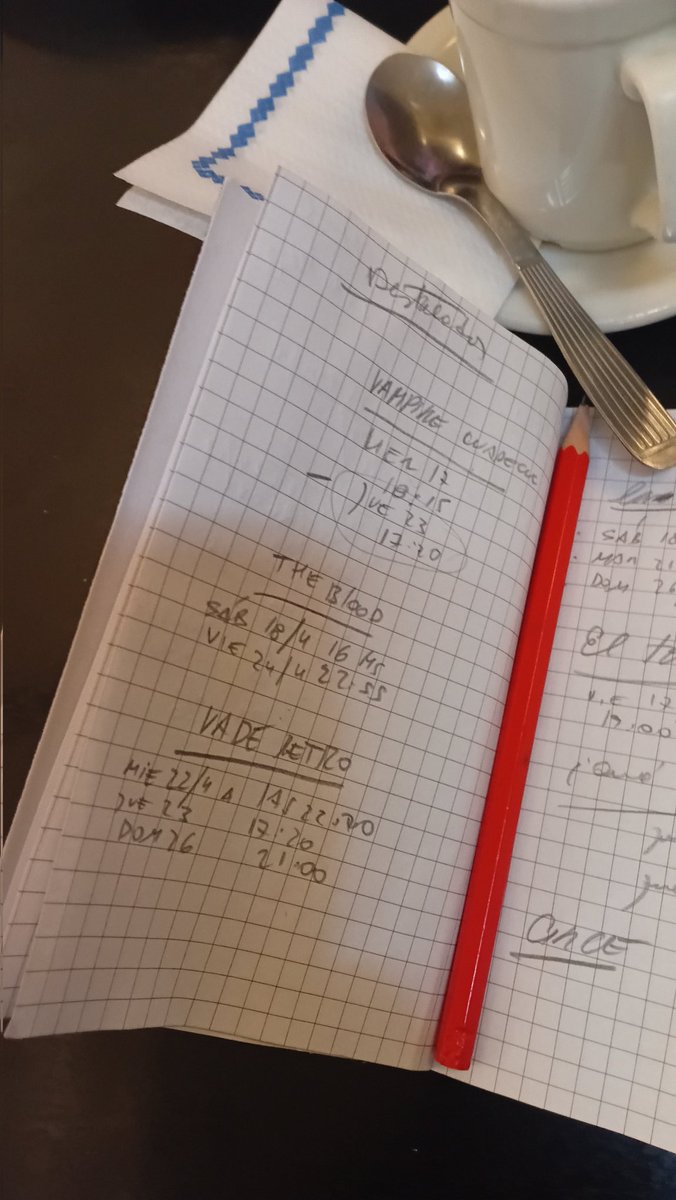 Destacados
VAMPIRE
VIER 17
18:15
JUE 23
17:20
THE BLOOD
SAB 18/4 16 HS
VIE 24/4 22:55
VADE RETRO
MIE 22/4 A LAS 22:20
JUE 23 17:20
DOM 26 21:00
SAB 18
MAR 21
DOM 26
El
VIE 17
17:00
¡Qué
CRUCE